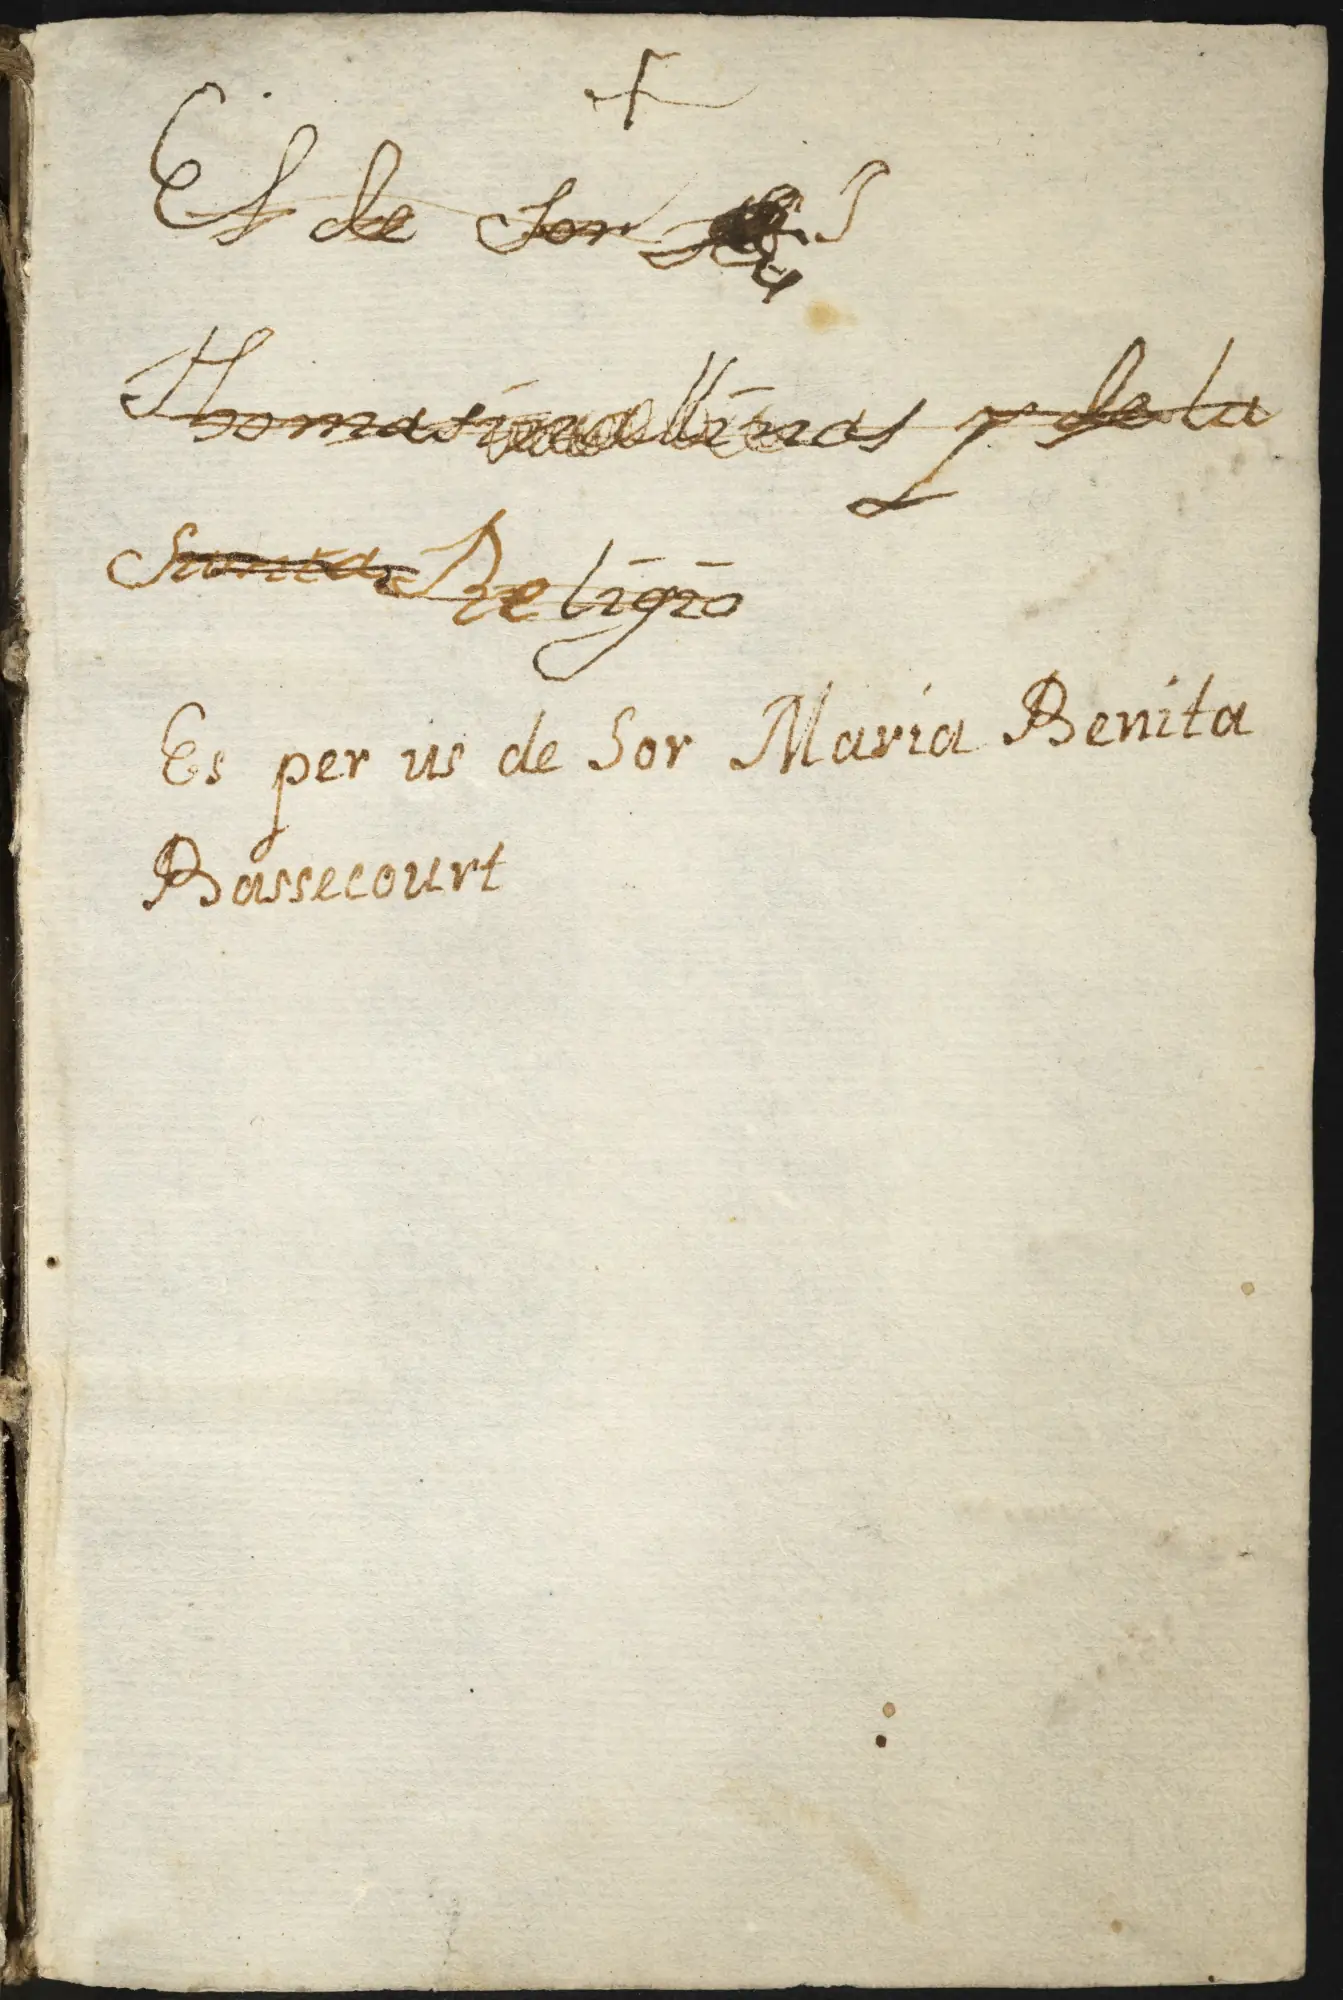 Es de Sor
Thomasina llinas y de la
Santa Religio
Es per us de Sor Maria Benita
Bassecourt